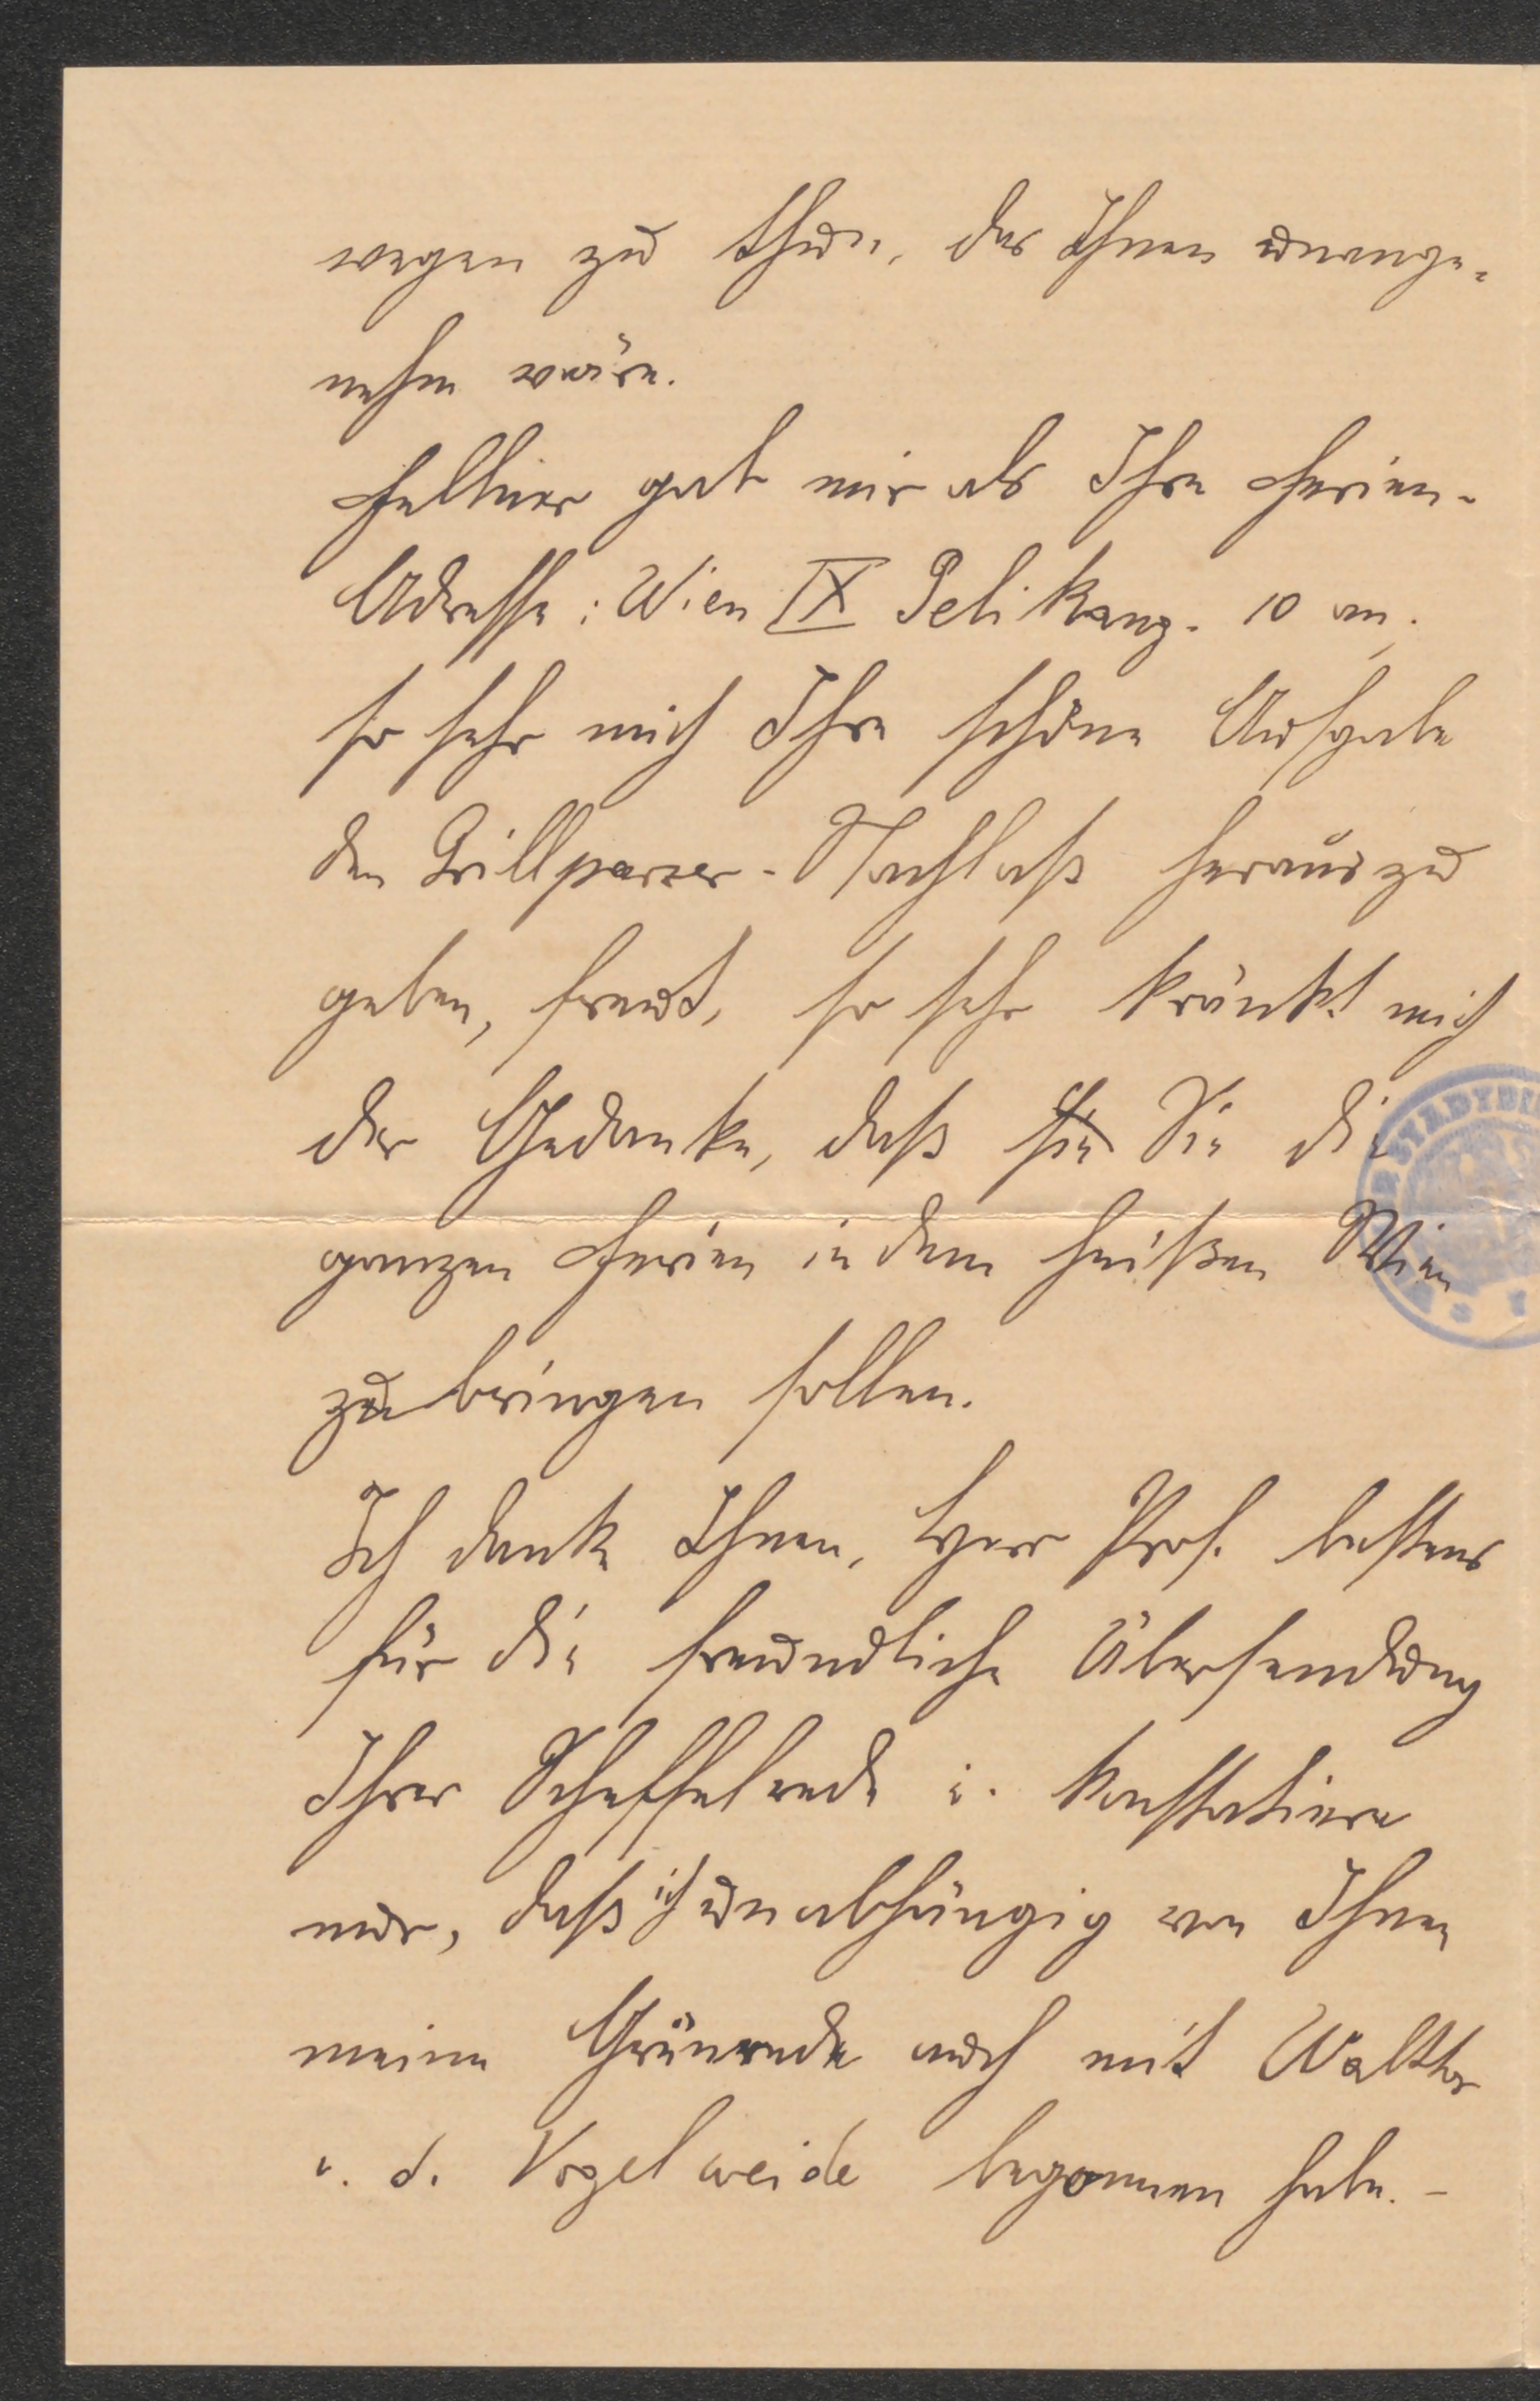 wegen zu thun, das Ihnen unange-
nehm wäre.
Fellner gab mir als Ihre Ferien-
Adresse: Wien IX Pelikang. 10 an.
So sehr mich Ihre schöne Aufgabe
den Grillparzer-Nachlaß herauszu
geben, freut, so sehr kränkt mich
der Gedanke, daß sie Sie die
ganzen Ferien in dem heißen Wien
zubringen sollen.
Ich danke Ihnen, Herr Prof. bestens
für die freundliche Übersendung
Ihrer Scheffelrede u. konstatiere
nur, daß ich unabhängig von Ihnen
meine Grünrede auch mit Walther
v. d. Vogelweide begonnen habe. –